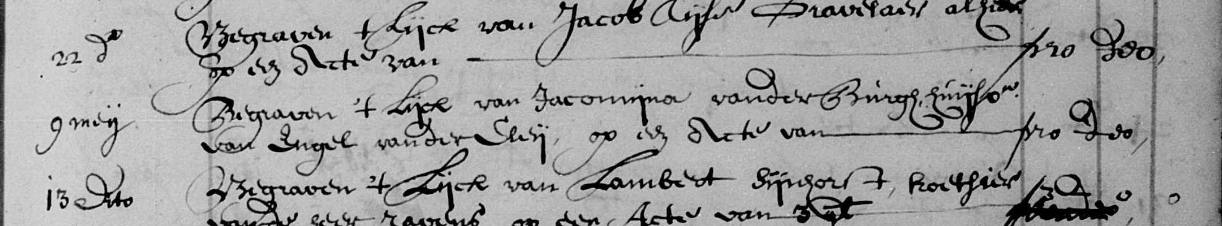 22 do Begraven t Lijck van Jacob Cijse Gravelaer alhier
op een Acte van - pro Deo,
9 meij Begraven 't Lijck van Jacomijna vander Burgh, huijsvr.
van Engel vander Cleij, op een Acte van pro Deo,
13 Dito Begraven 't Lijck van Lambert Sijnhorst, koethier
vande heer Ravens op een Acte van 3 gl 3 0 0